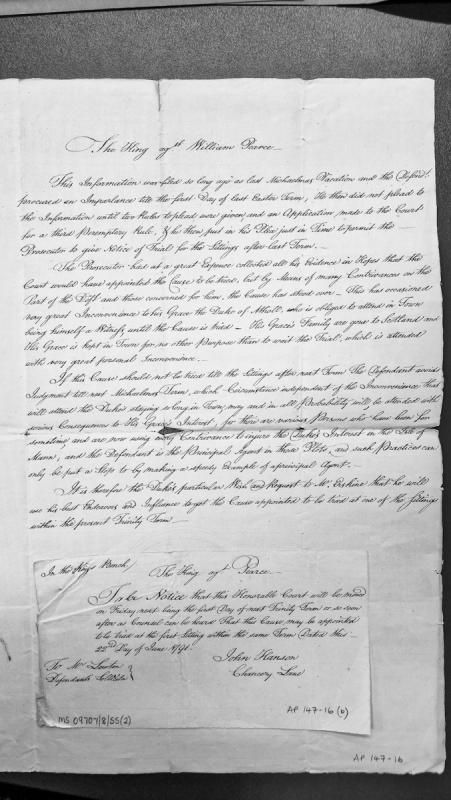 The King agst. William Pearce
This Information was filed so long ago as last Michaelmas Vacation and the Defendt.
procured an Imparlance till the first Day of last Easter Term, He then did not plead to
the Information until two Rules to plead were given and an Application made to the Court
for a third Peremptory Rule, & he then put in his Plea just in Time to permit the
Prosecutor to give Notice of Trial for the Sittings after last Term.
The Prosecutor has at a great Expence collected all his Evidence in Hopes that the
Court would have appointed the Cause to be tried, but by Means of many Contrivances on the
Part of the Deft. and those concerned for him, the Cause has stood over. This has occasioned
very great Inconvenience to his Grace the Duke of Atholl, who is obliged to attend in Town
being himself a Witness, until the Cause is tried – His Grace's Family are gone to Scotland and
His Grace is kept in Town for no other Purpose than to wait the Trial, which is attended
with very great personal Inconvenience.
If this Cause should not be tried till the Sittings after next Term The Defendant avoids
Judgment till next Michaelmas Term, which Circumstance independent of the Inconvenience that
will attend the Duke's staying so long in Town, may and in all Probability will be attended with
serious Consequences to His Grace's Interest, for there are various Persons who have been for
sometime and are now using every Contrivance to injure the Duke's Interest in the Isle of
Mann, and the Defendant is the Principal Agent in these Plots, and such Practices can
only be put a Stop to by making a speedy Example of a principal Agent.
It is therefore the Duke's particular Wish and Request to Mr. Erskine that he will
use his best Endeavors and Influence to get the Cause appointed to be tried at one of the Sittings
within the present Trinity Term
In the King's Bench
The King agt. Pearce
Take Notice that this Honorable Court will be moved
on Friday next being the first Day of next Trinity Term or so soon
after as Counsel can be heard That this Cause may be appointed
to be tried at the first Sitting within the same Term Dated this
22nd Day of June 1791.
To Mr. Lowten
Defendants Solicitor
John Hanson
Chancery Lane
MS 09707/8/55(2)
AP 147-16 (b)
AP 147-16